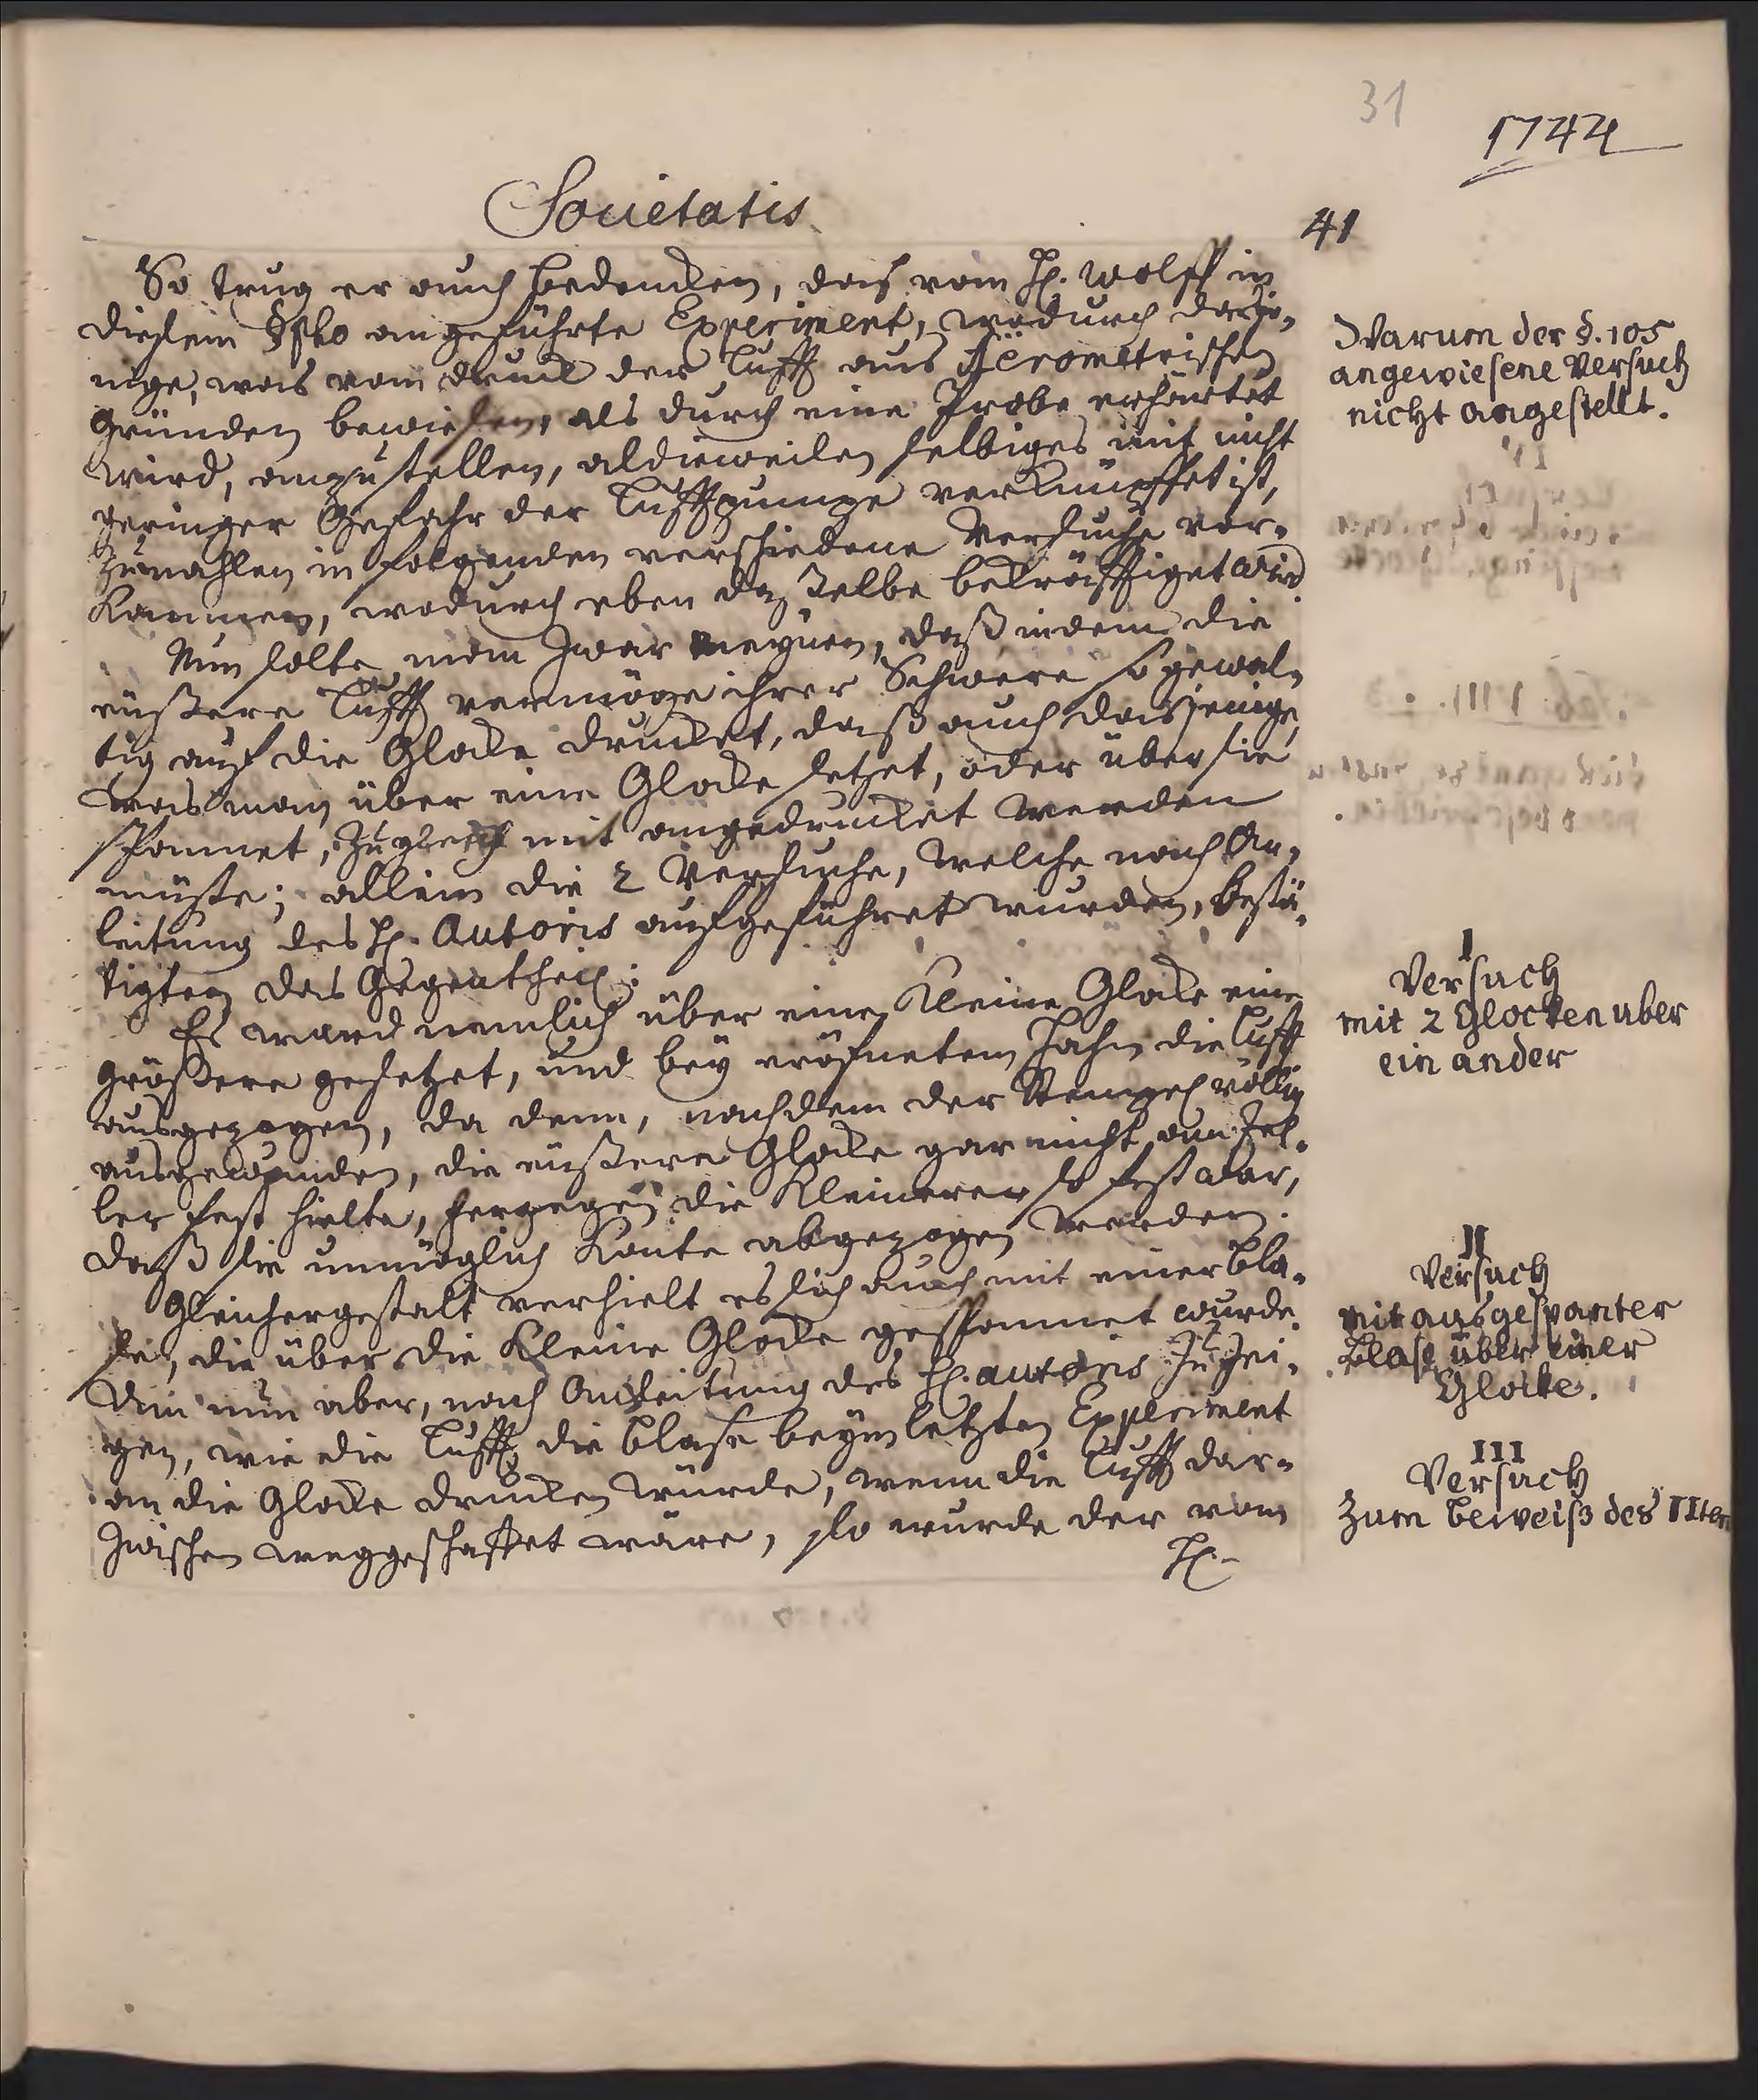 31
1744
Societatis
41
So trug er auch Bedencken, das vom H. Wolff in
diesem §pho angeführte Experiment, wodurch dasje-
nige, was vom druck der Lufft aus Aerometrischen
Gründen bewiesen, als durch eine Probe erhärtet
wird, anzustellen, aldieweilen selbiges mit nicht
geringer Gefahr der Lufftpumpe verknüpffet ist,
zumahlen in folgenden verschiedene Versuche vor-
kommen, wodurch eben daßelbe bekräfftiget wird
Nun solte man zwar meynen, daß indem die
eüßere Lufft vermöge ihrer Schwere so gewal-
tig auf die Glocke drucket, daß auch dasjenige,
was man über eine Glocke setzet, oder über sie
spannet, zugleich mit angedrucket werden
müßte; allein die 2 Versuche, welche nach An-
leitung des H. Autoris aufgeführet wurden, bestä-
tigten das Gegentheil:
Es ward nemlich über eine kleine Glocke eine
größere gesetzet, und bey eröfnetem Hahn die Lufft
ausgezogen, da denn, nachdem der Stempel völlig
ausgewunden, die eüßere Glocke gar nicht am Tel-
ler fest hielte, hergegen die kleinere so fest war,
daß sie unmöglich konte abgezogen werden.
Gleichergestalt verhielt es sich auch mit einer Bla-
se, die über die kleine Glocke gespannet wurde.
Um nun aber, nach Anleitung des H. autoris zu zei-
gen, wie die Lufft die Blase beym letzten Experiment
an die Glocke drucken würde, wenn die Lufft dar-
zwischen weggeschaffet wäre, so wurde der vom
H.
Warum der §. 105
angewiesene Versuch
nicht angestellt.
I
Versuch
mit 2 Glocken uber
ein ander
II
Versuch
mit ausgespanter
Blase über einer
Glocke.
III
Versuch
zum Beweiß des IIten